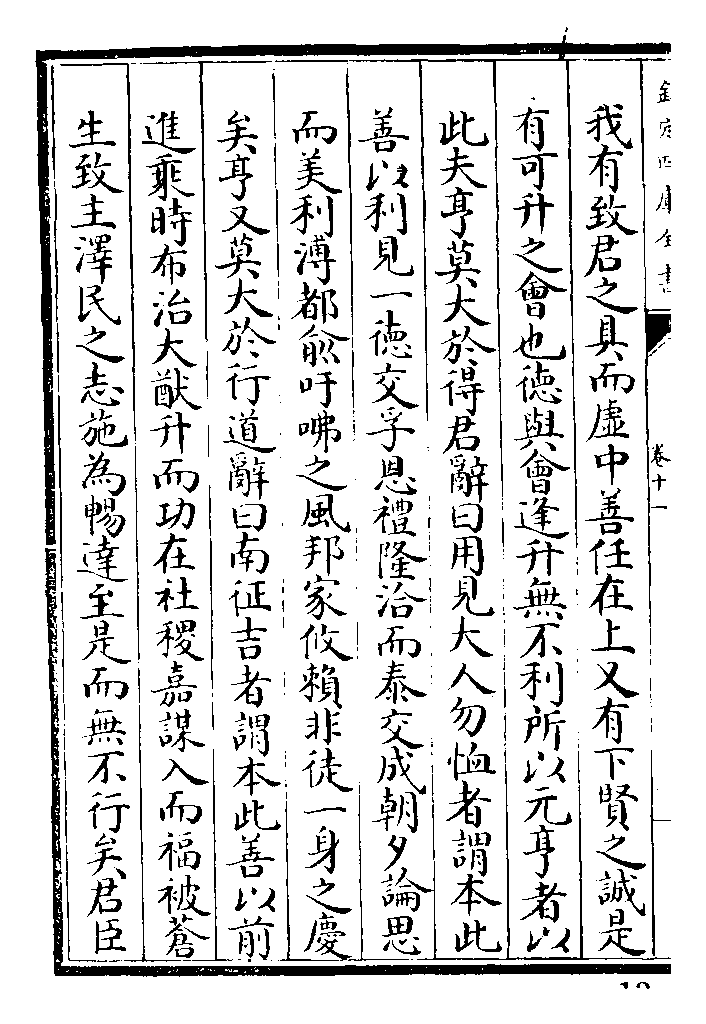 欽定四庫全書
卷十一
我有致君之具而虛中善任在上又有下賢之誠是
有可升之會也德與會逢升無不利所以元亨者以
此夫亨莫大於得君辭曰用見大人勿恤者謂本此
善以利見一德交孚恩禮隆洽而泰交成朝夕論思
而美利溥都俞吁咈之風邦家攸賴非徒一身之慶
矣亨又莫大於行道辭曰南征吉者謂本此善以前
進乘時布治大猷升而功在社稷嘉謀入而福被蒼
生致主澤民之志施為暢達至是而無不行矣君臣